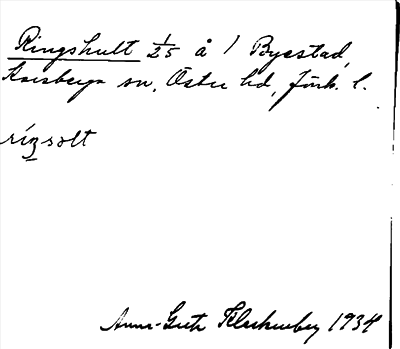 Ringshult 1/25 å 1 Byestad,
Korsberga sn, Östra hd, Jönk. l.
ríŋsolt
Anna-Greta Klackenberg 1934